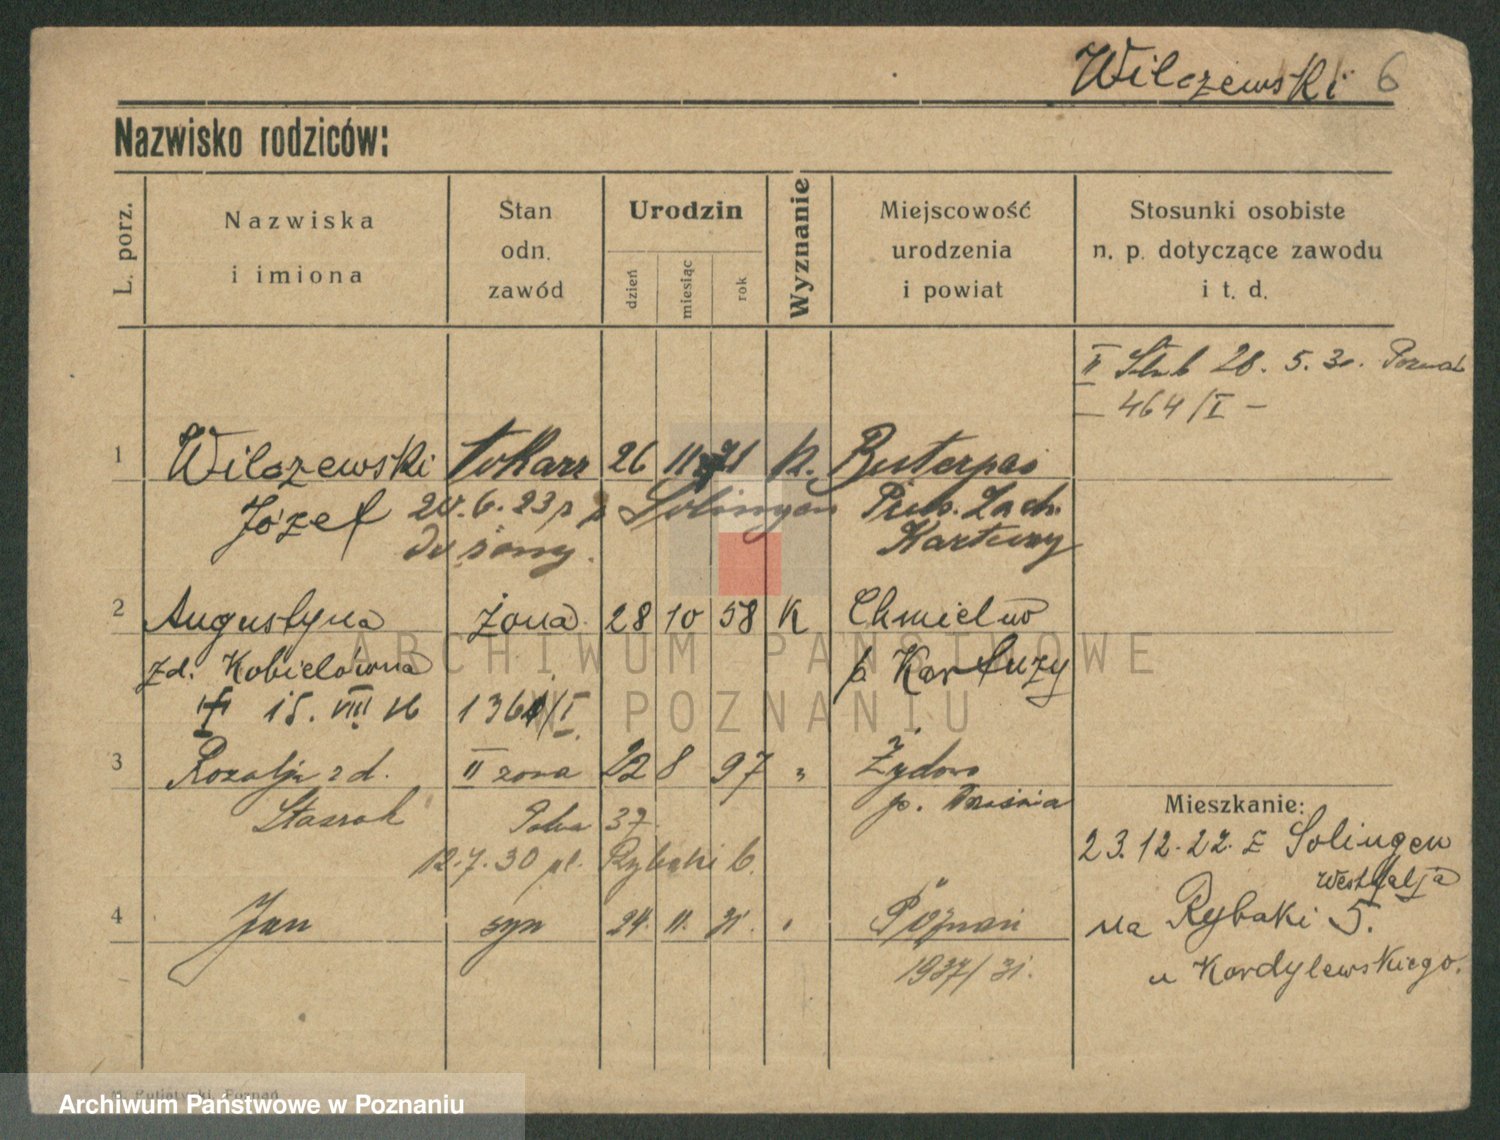 Wilczewski 6
Nazwisko rodziców:
L. porz.
Nazwiska
i imiona
Stan
odn.
zawód
Urodzin
dzień
miesiąc
rok
Wyznanie
Miejscowość
urodzenia
i powiat
Stosunki osobiste
n. p. dotyczące zawodu
i t. d.
II Ślub 28. 5. 30. Poznań
464/I -
1 Wilczewski tokarz 26 11 71 k.
Józef 20.6.23 Solingen Prus. Zach.
do żony. Kartuzy
2 Augustyna żona 28 10 58 K Chmielno
zd. Kobielówna p Kartuzy
+ 15. VIII 26 1361/I
3 Rozalja zd. II żona 22 8 97 " Żydowo
Staszak 37 p.
Mieszkanie:
12.7.30 pl. Rybaki 6.
23.12.22. z Solingen
Westfalja
na Rybaki 5.
u Kordylewskiego.
4 Jan syn 24. 11. 31. " Poznań
1937/31.
ARCHIWUM PAŃSTWOWE
W POZNANIU
Archiwum Państwowe w Poznaniu